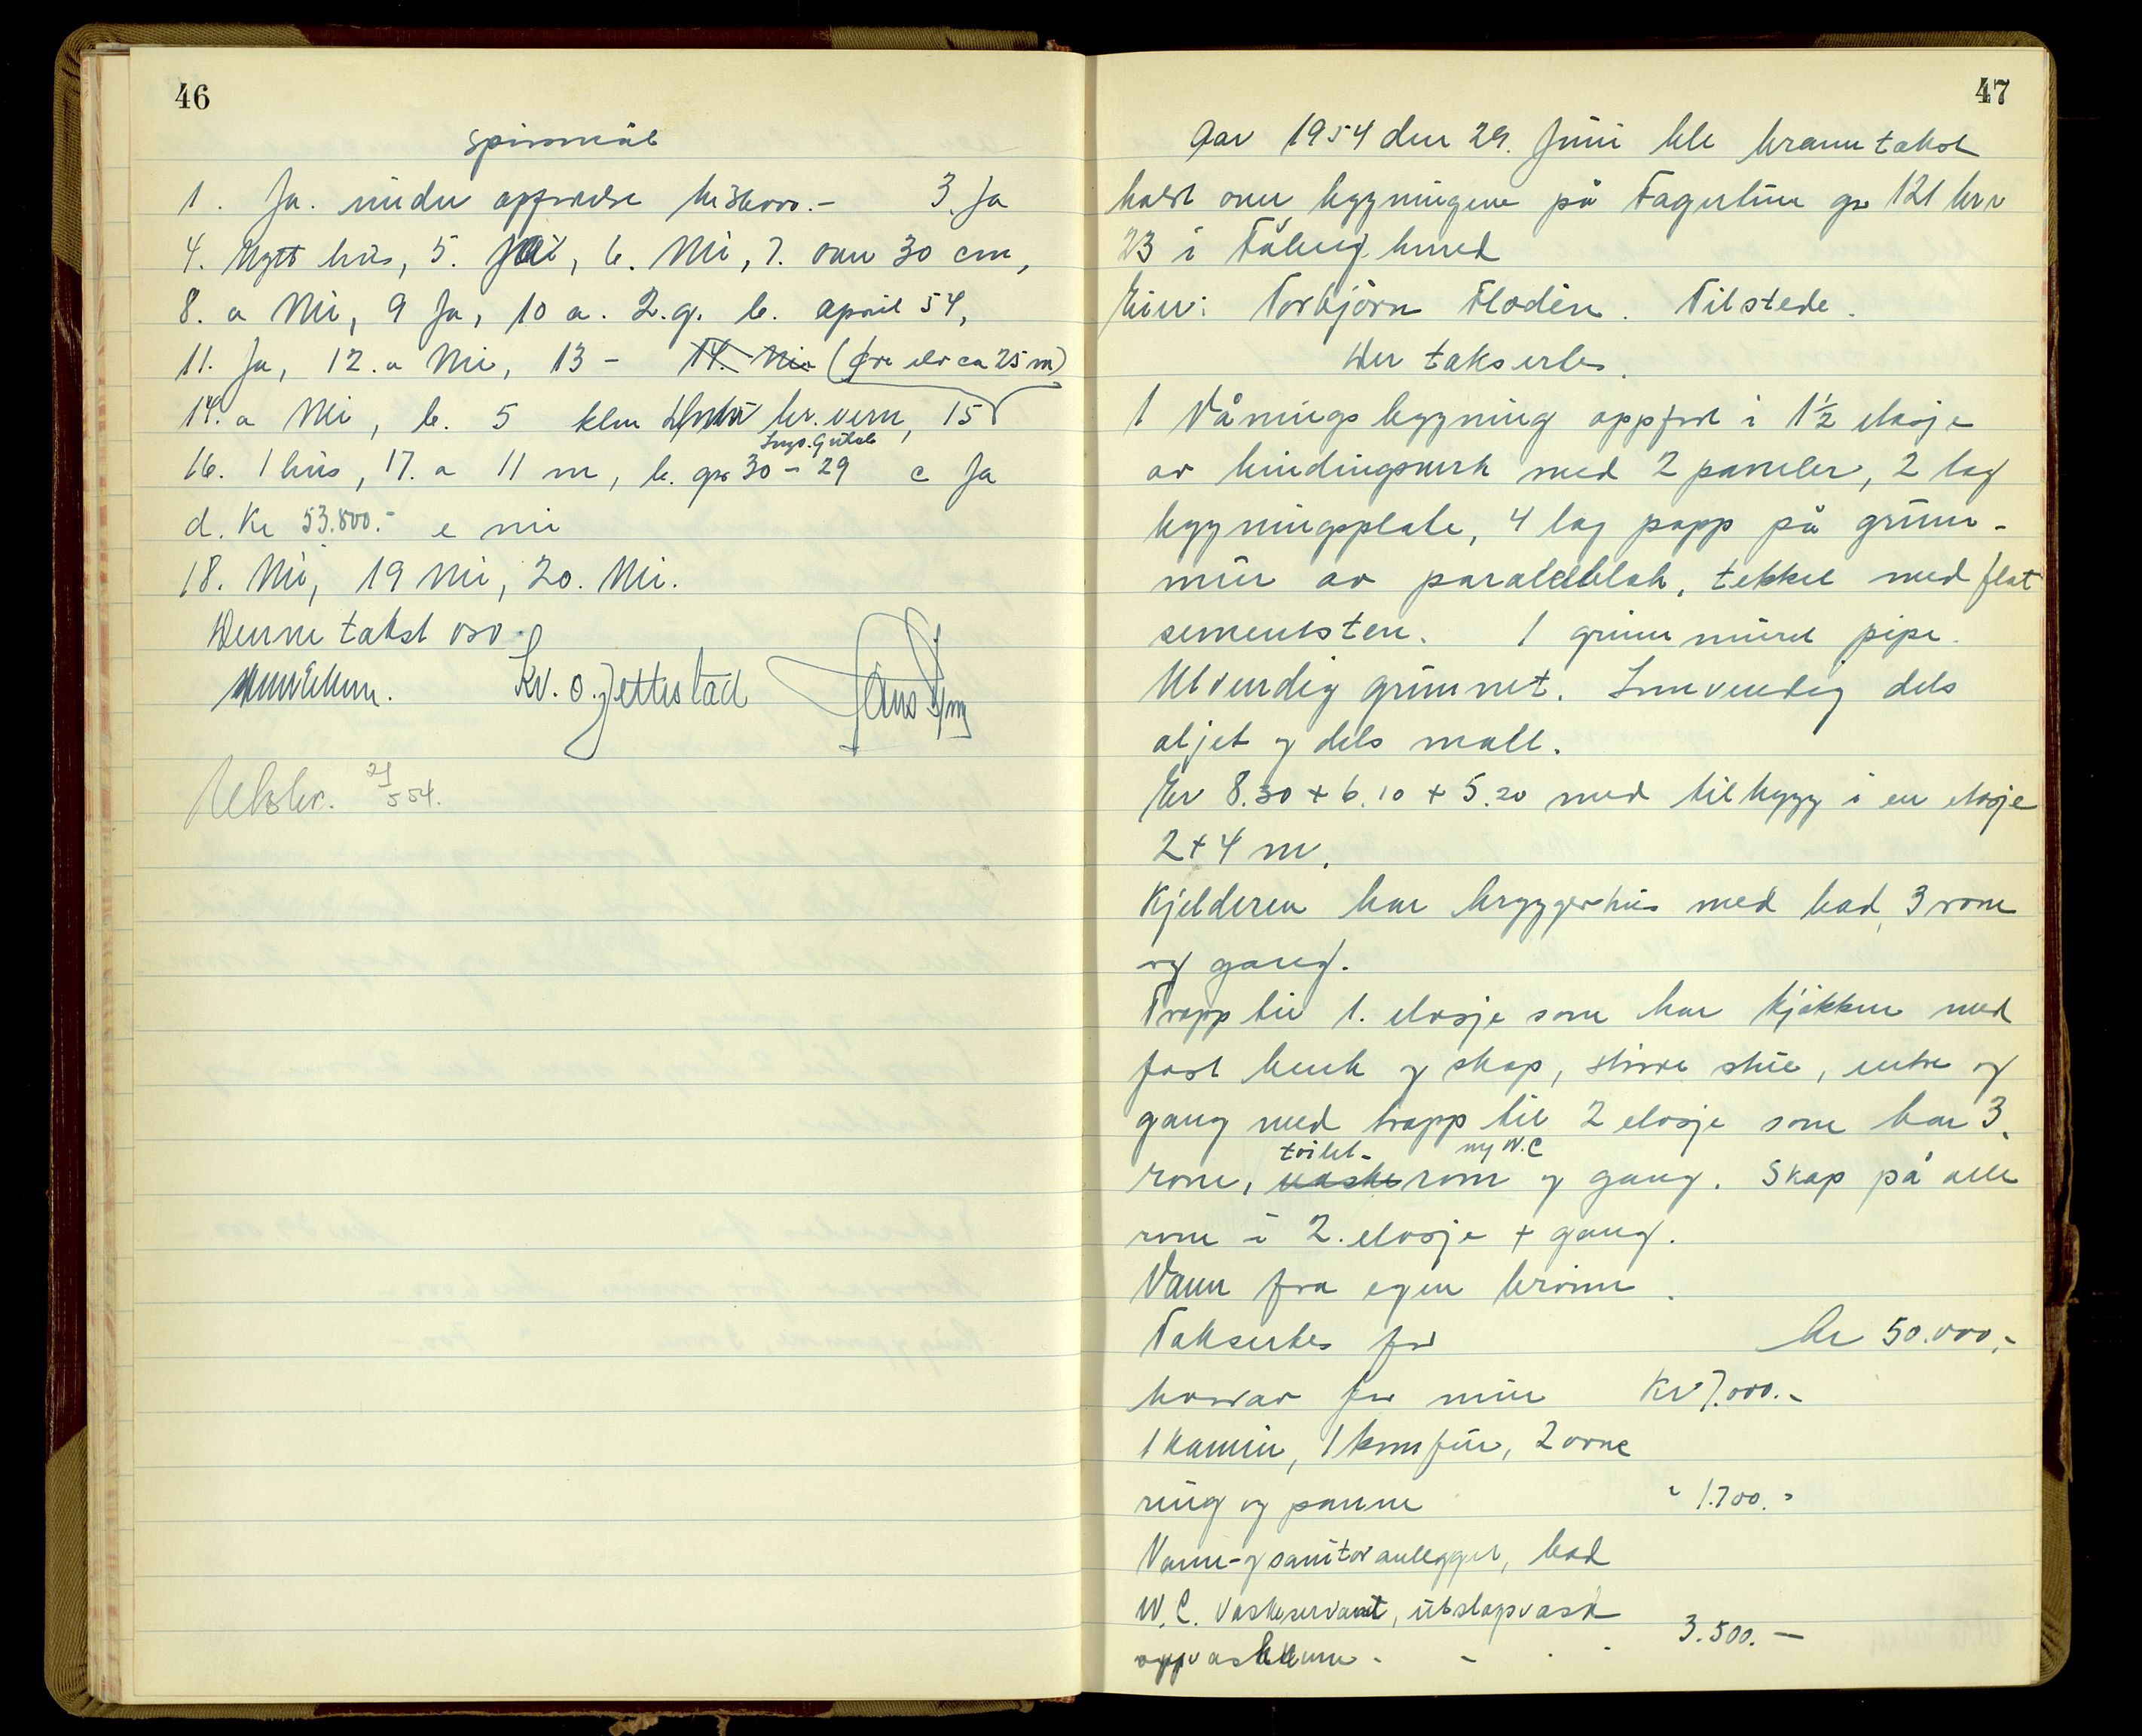 46
Spørsmål
1. Ja. under oppførelse kr 36000.- 3. Ja
4. Nytt hus, 5. Nei, 6. Nei, 7. over 30 cm,
8. a Nei, 9 Ja, 10 a. 2.g. b. april 54,
11. Ja, 12. a Nei, 13 - 14. Nei (ca 25 m)
14. a Nei, b. 5 klm br.vern, 15
16. 1 hus, 17. a 11 m, b. gr 30 - 29 c Ja
d. Kr 53.800.- e nei
18. Nei, 19 Nei, 20. Nei.
Denne takst osv.
Kv. O. Jettestad
Utskr. 21/5 54.
47
Aar 1954 den 29. Juni ble branntakst
holdt over bygningene på Fagertun gr 121 br n
23 i Fåberg herred
Eier: Torbjörn Flodèn. Tilstede.
Der takserles.
1 Våningsbygning oppført i 1½ etasje
av bindingsverk med 2 paneler, 2 lag
bygningsplate, 4 lag papp på grunn-
mur av paralellblok, tekket med flat
sementsten. 1 grunnmuret pipe.
Utvendig grunnet. Innvendig dels
oljet og dels malt.
Er 8.30 + 6.10 + 5.20 med tilbygg i en etasje
2 + 4 m.
Kjelderen har bryggerhus med bad, 3 rom
og gang.
Trapp til 1. etasje som har kjøkken med
fast benk og skap, større stue, entre og
gang med trapp til 2 etasje som har 3
toilet- og W.C
rom, vaskerom og gang. Skap på alle
rom i 2. etasje + gang.
Vann fra egen brønn.
Takserles for kr 50.000.-
hvorav for mur Kr 7.000.-
1 kamin, 1 komfur, 2 ovne
ring og panne " 1.700.-
Vann- og sanitæranlegget, bad
W.C. Vaskeservant, utslagsvask
oppvaskkum - - 3.500.-